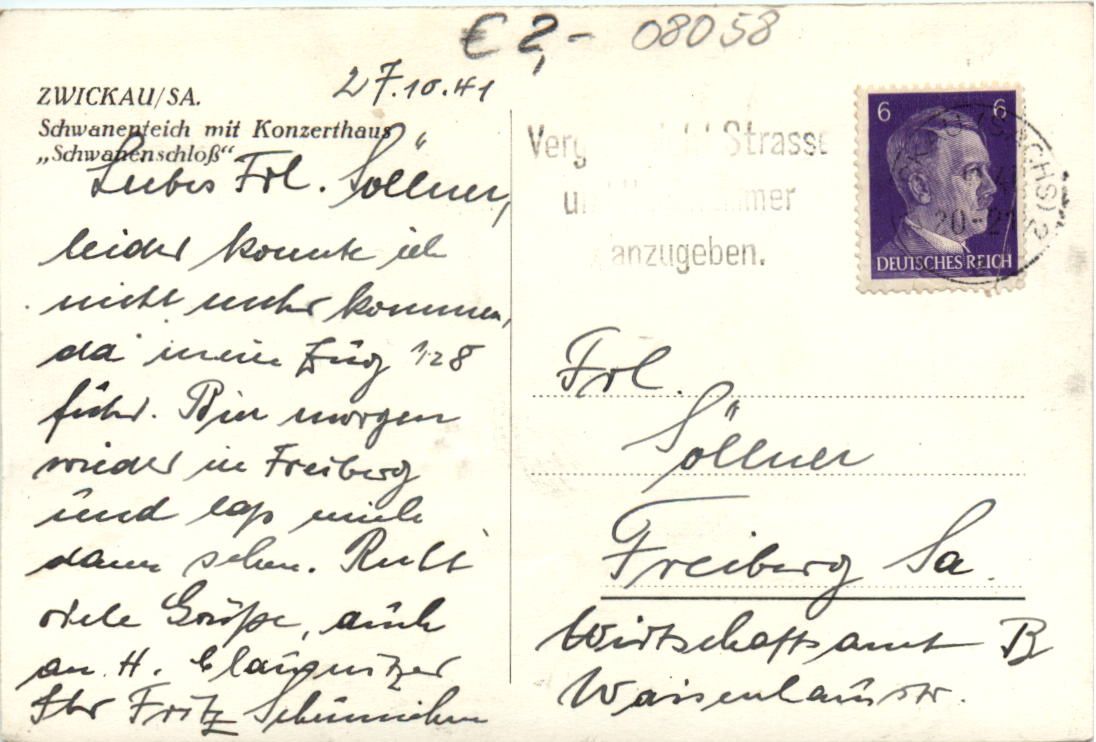 € 2,- 08058
ZWICKAU/SA.
Schwanenteich mit Konzerthaus
„Schwanenschloß“
27.10.41
Liebes Frl. Söllner,
leider konnte ich
nicht mehr kommen,
da mein Zug 128
fuhr. Bin morgen
wieder in Freiberg
und laß mich
dann sehen. Recht
viele Grüße, auch
an H.
Ihr Fritz
Strasse
anzugeben.
6 6
DEUTSCHES REICH
20-21
Frl.
Söllner
Freiberg Sa.
Wirtschaftsamt B
Waisenhausstr.